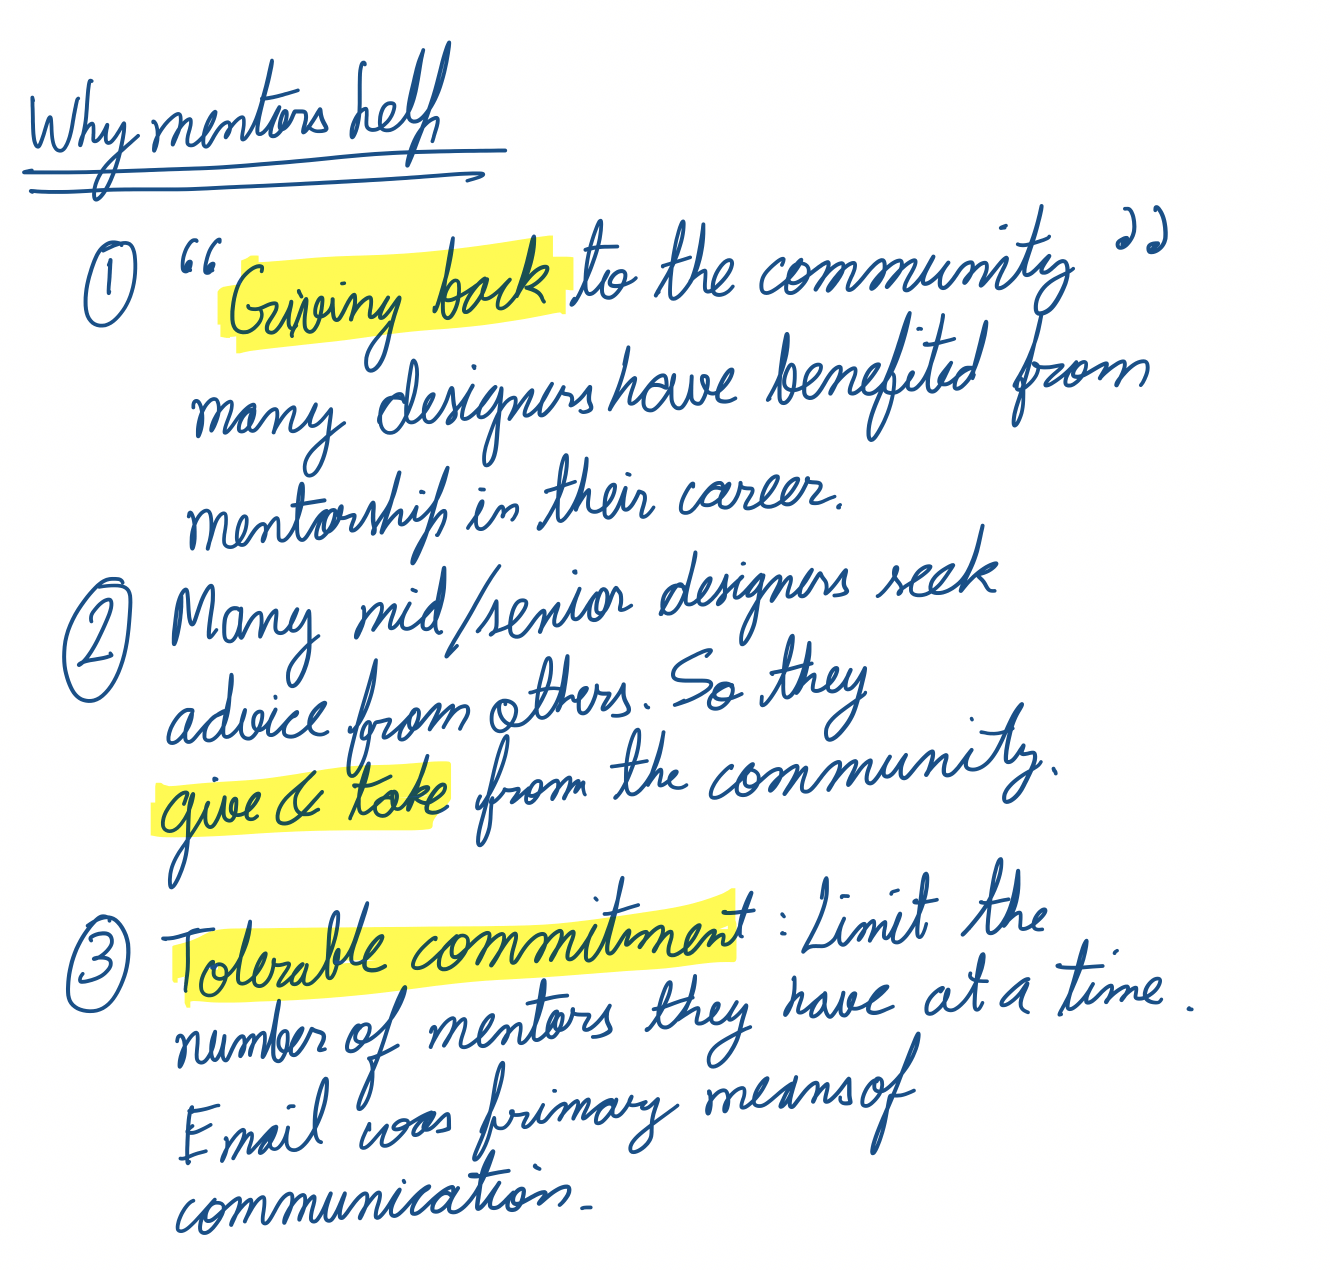 Why mentors help
① “Giving back to the community”
many designers have benefited from
mentorship in their career.
② Many mid/senior designers seek
advice from others. So they
give & take from the community.
③ Tolerable commitment: Limit the
number of mentors they have at a time.
Email was primary means of
communication.